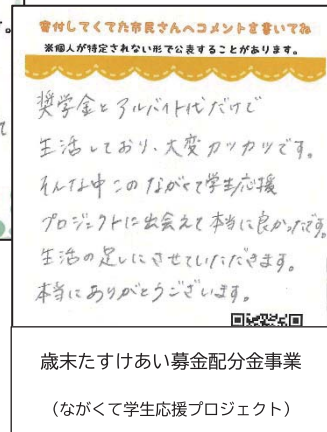 寄付してくてた市民さんへコメントを書いてね
※個人が特定されない形で公表することがあります。
奨学金とアルバイト代だけで
生活しており、大変カツカツです。
そんな中このながくて学生応援
プロジェクトに出会えて本当に良かったです。
生活の足しにさせていただきます。
本当にありがとうございます。
歳末たすけあい募金配分金事業
（ながくて学生応援プロジェクト）